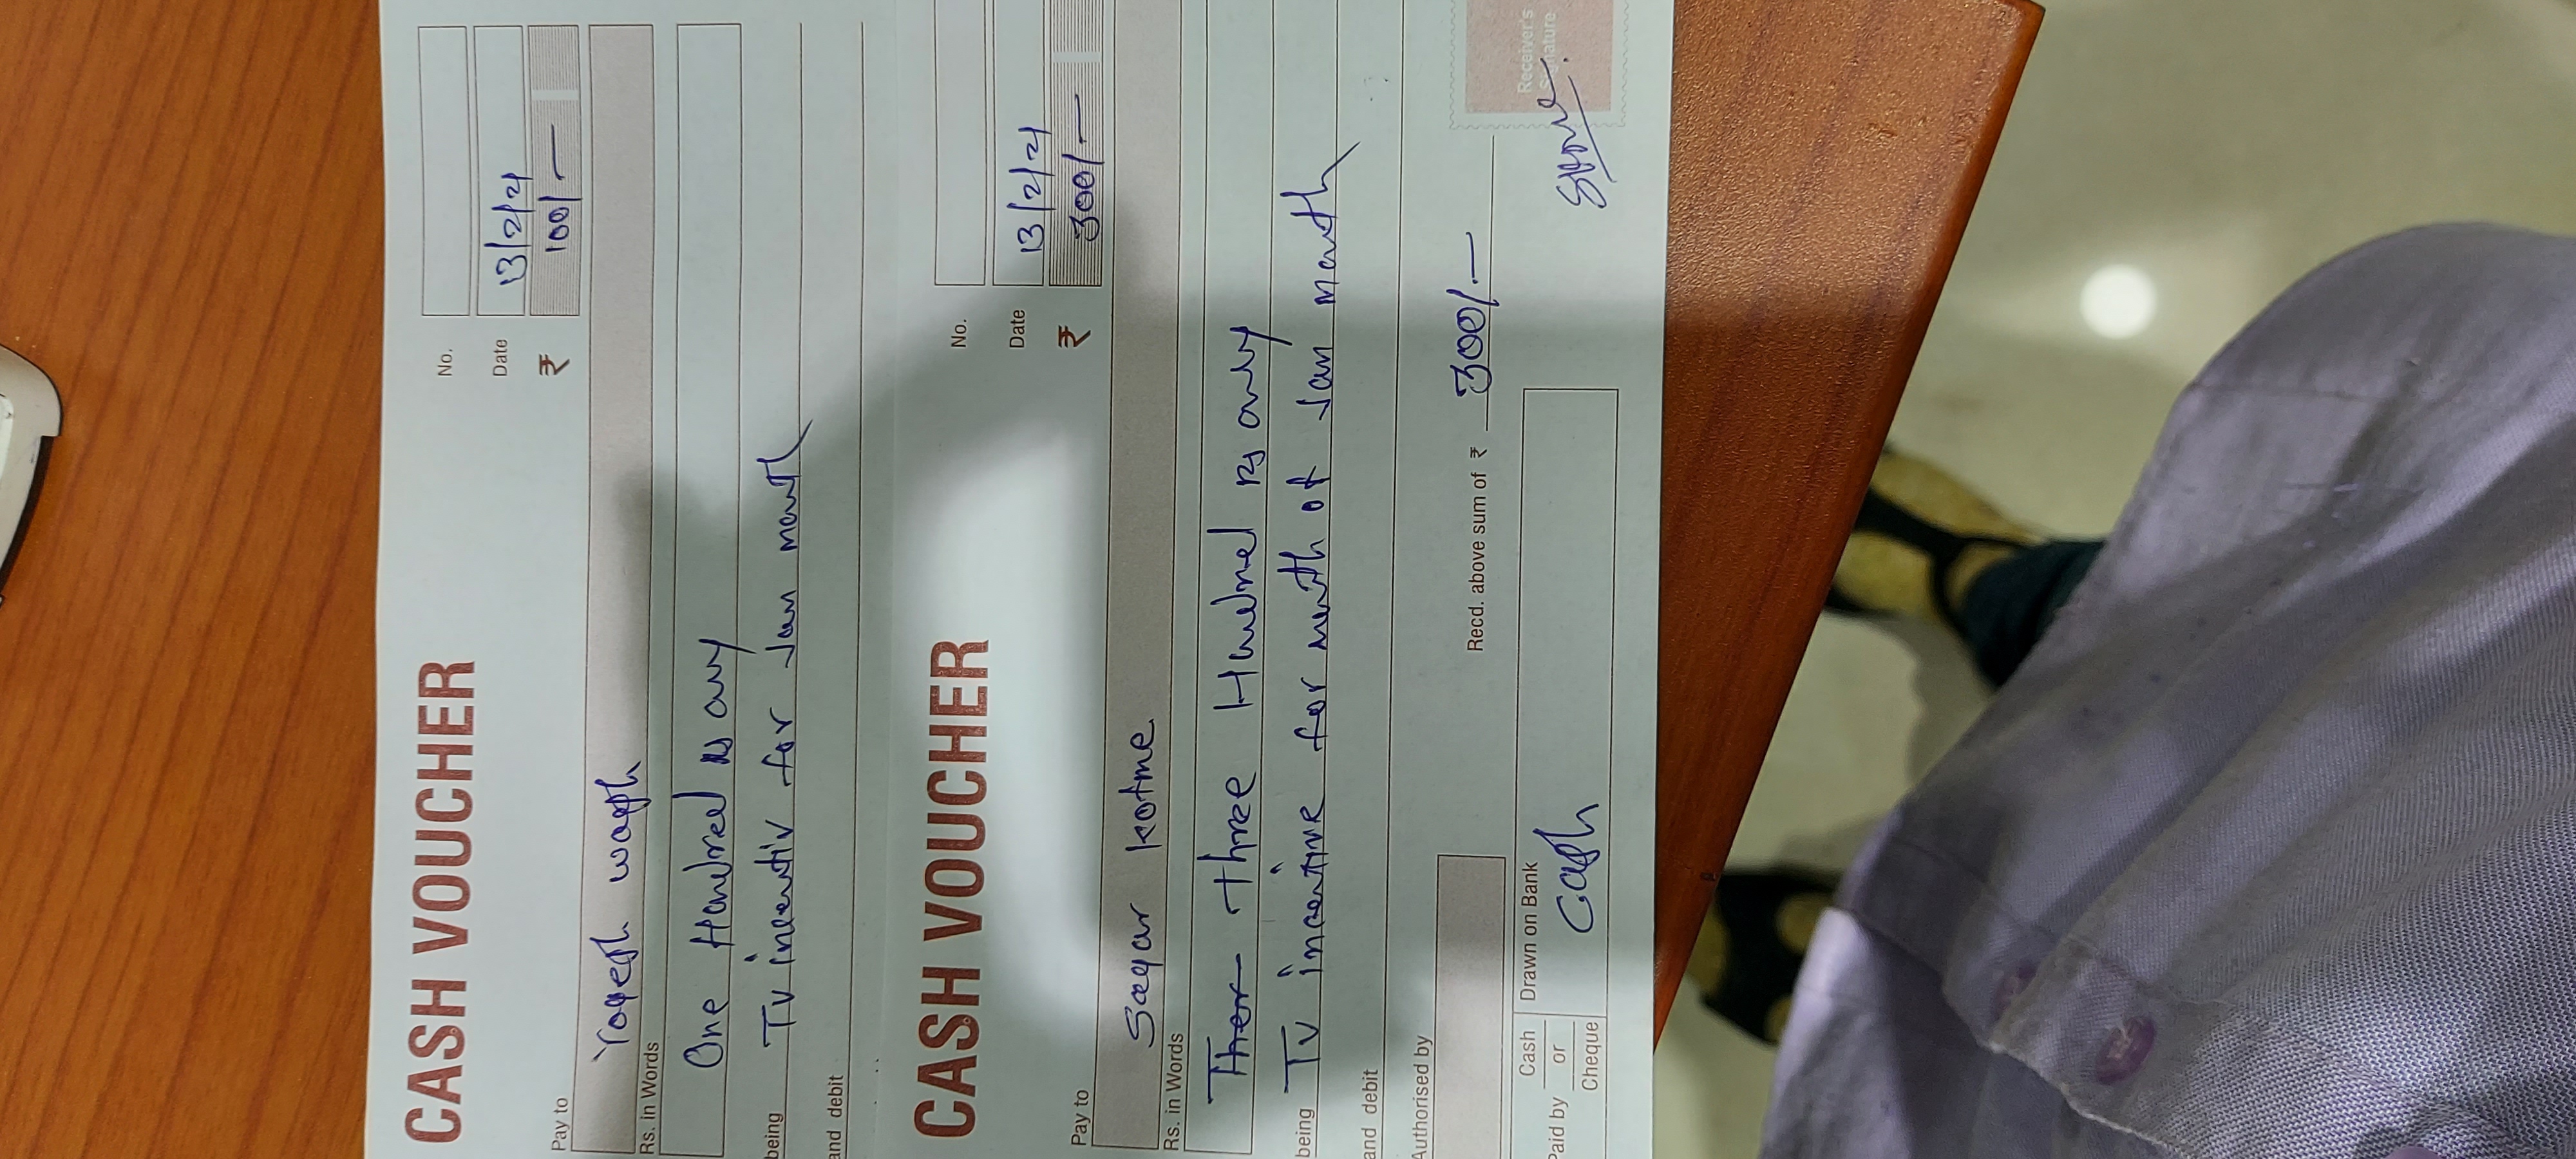 CASH VOUCHER
No.
Date 13/2/21
₹ 100/-
Pay to
Yogesh wagh
Rs. in Words
One Hundred Rs only
being Tv incentiv for Jan month
and debit
CASH VOUCHER
No.
Date 13/2/21
₹ 300/-
Pay to
Sagar kotme
Rs. in Words
Ther three Hundred Rs only
being Tv incentive for month of Jan month
and debit
Authorised by
Recd. above sum of ₹ 300/-
Receiver's
Signature
Paid by Cash or Cheque
Drawn on Bank
Cash